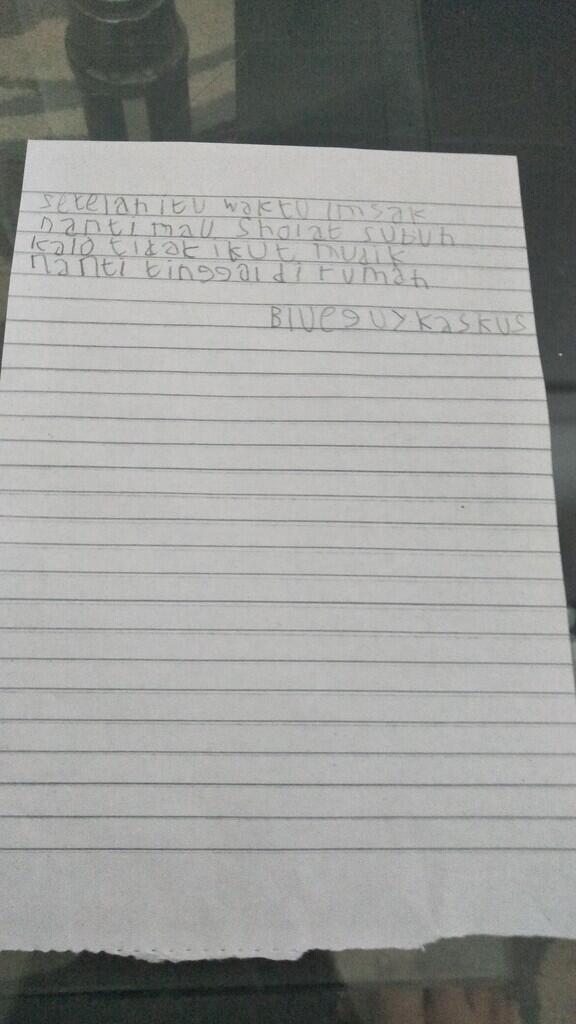 setelah itu waktu imsak
nanti mau sholat subuh
kalo tidak ikut mudik
nanti tinggal di rumah
Blueguykaskus